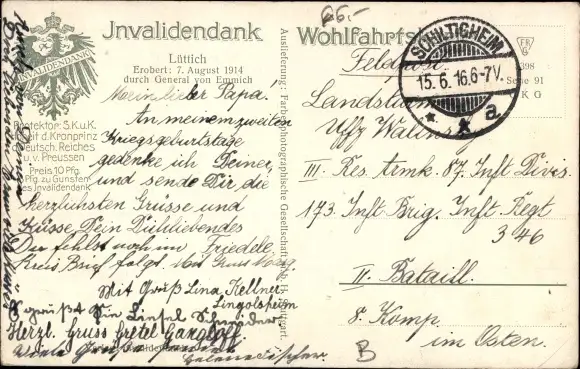 66.-
Invalidendank
Wohlfahrts
INVALIDENDANK
Lüttich
Erobert: 7. August 1914
durch General von Emmich
Protektor: S.K.u.K.
d. Kronprinz
Deutsch. Reiches
u.v. Preussen
Preis 10 Pfg.
Pfg. zu Gunsten
des Invalidendank
Mein lieber Papa!
An meinem zweiten
Kriegsgeburtstage
gedenke ich Deiner,
und sende Dir die
herzlichsten Grüsse und
Küsse Dein Dichliebendes
Du fehlst noch im Friedele
Kreis Brief folgt.
Mit Gruß Lina Kellner
Lingolsheim
Es grüßt Dein
Herzl. Gruss Gretel
Viele Grüße
Helene Fischer
Auslieferung: Farbenphotographische Gesellschaft m. b. H. Stuttgart
SCHILTIGHEIM
15. 6. 16. 6-7V.
* * a
398
Serie 91
K G
Feldpost
Landsturm
Uffz
III. Res Armk. 87. Inft Divis.
173. Inft Brig. Inft. Regt
346
II. Bataill.
8. Komp
im Osten.
B